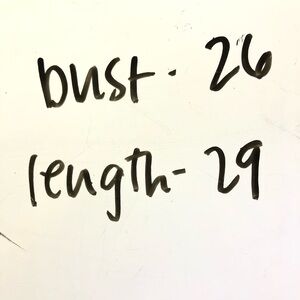 bust - 26
length - 29